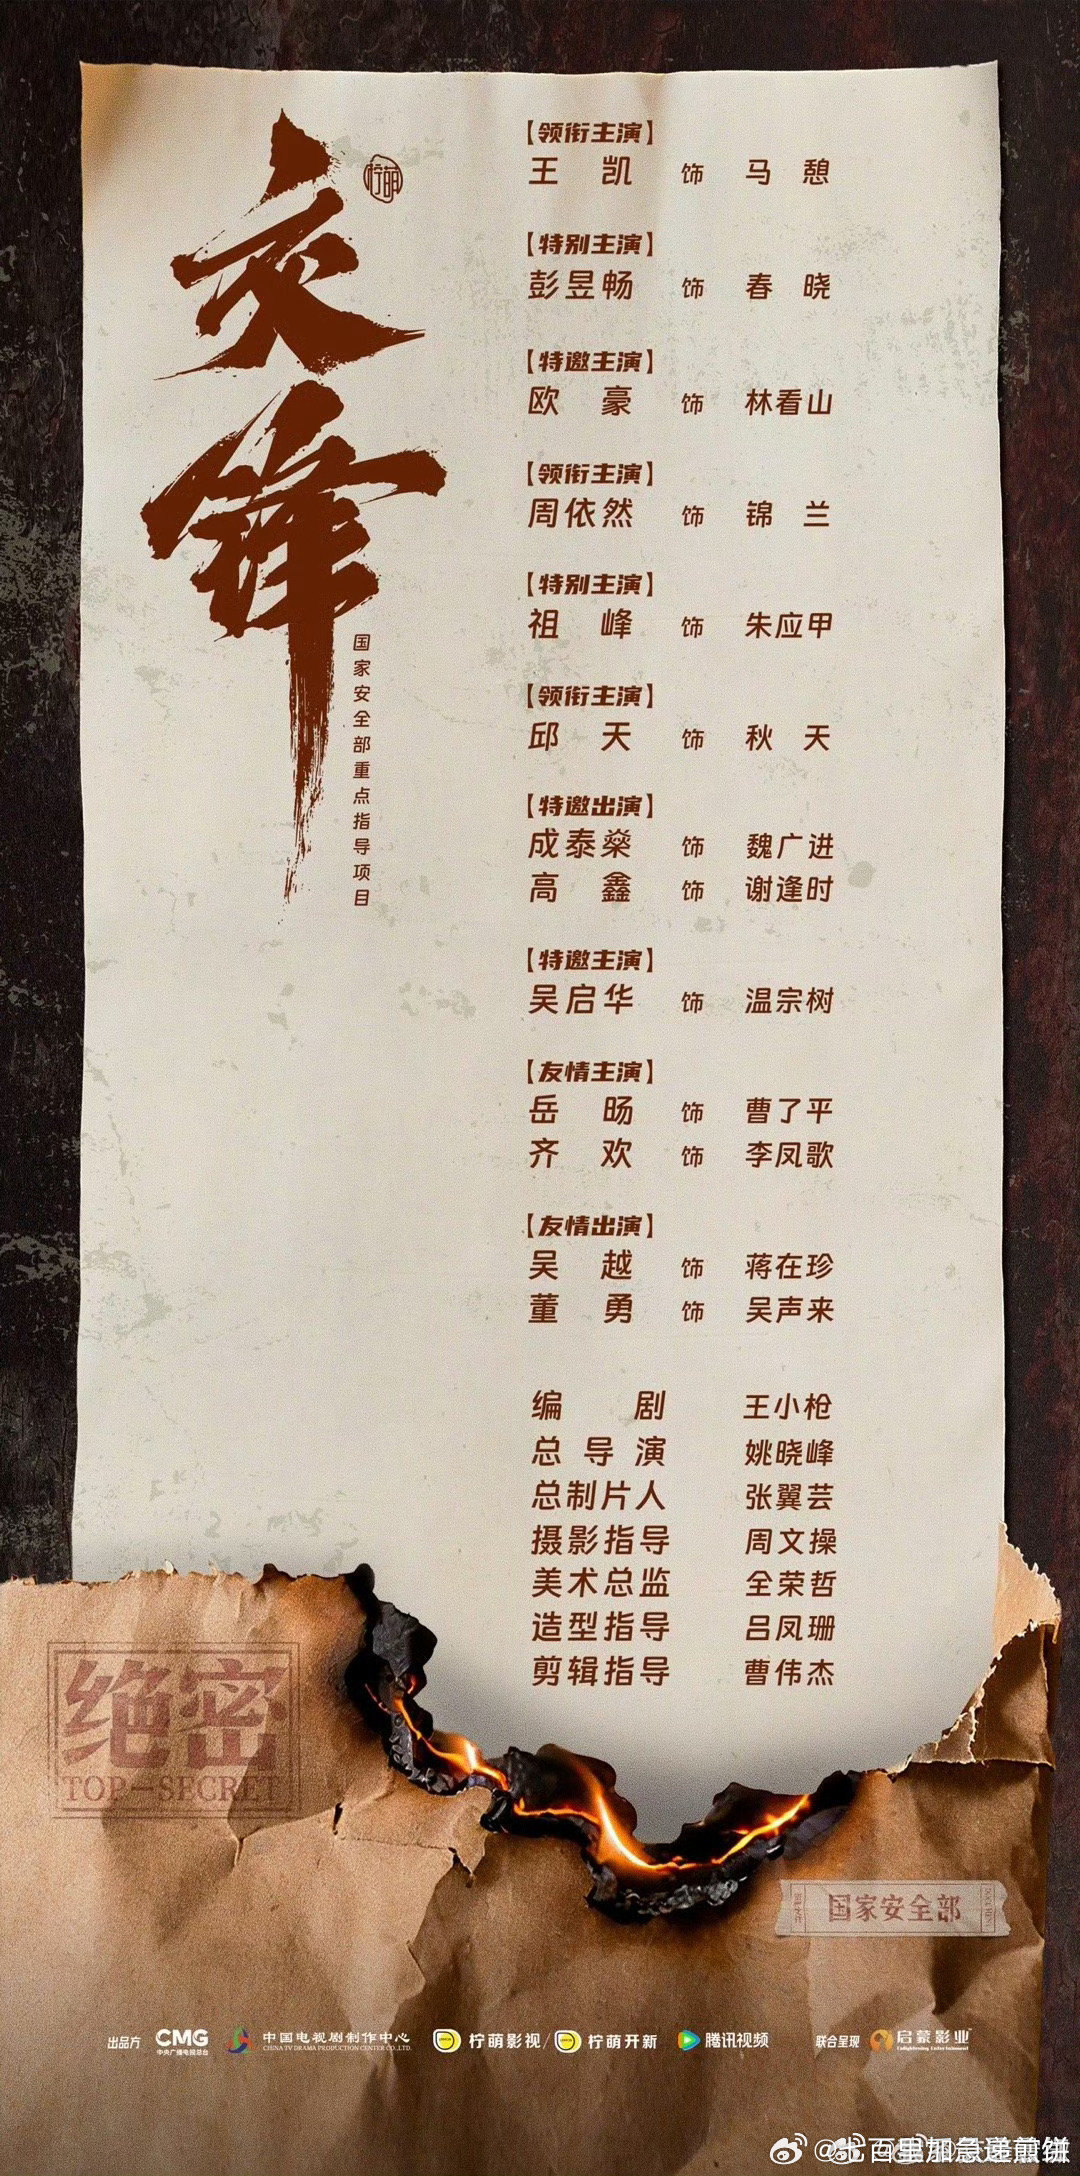 交锋
柠萌
国家安全部重点指导项目
【领衔主演】
王凯 饰 马憩
【特别主演】
彭昱畅 饰 春晓
【特邀主演】
欧豪 饰 林看山
【领衔主演】
周依然 饰 锦兰
【特别主演】
祖峰 饰 朱应甲
【领衔主演】
邱天 饰 秋天
【特邀出演】
成泰燊 饰 魏广进
高鑫 饰 谢逢时
【特邀主演】
吴启华 饰 温宗树
【友情主演】
岳旸 饰 曹了平
齐欢 饰 李凤歌
【友情出演】
吴越 饰 蒋在珍
董勇 饰 吴声来
编剧 王小枪
总导演 姚晓峰
总制片人 张翼芸
摄影指导 周文操
美术总监 全荣哲
造型指导 吕凤珊
剪辑指导 曹伟杰
绝密
TOP-SECRET
国家安全部
出品方 CMG 中央广播电视总台 中国电视剧制作中心 CHINA TV DRAMA PRODUCTION CENTER CO.,LTD. 柠萌影视/柠萌开新 腾讯视频 联合呈现 启蒙影业